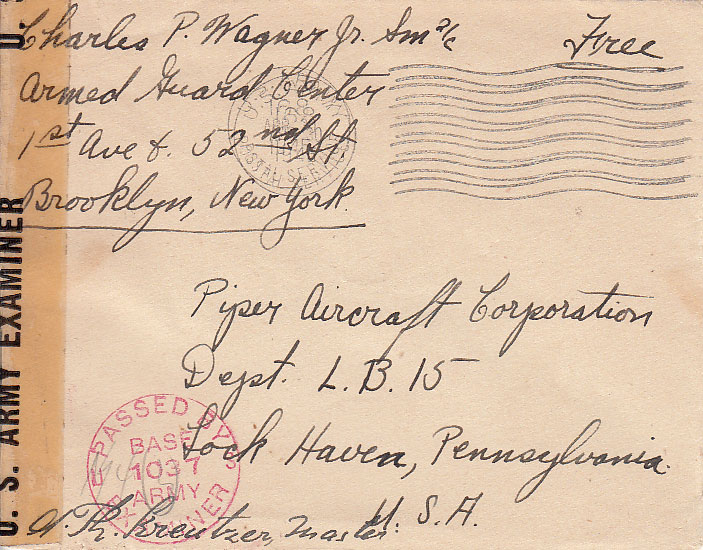 Charles P. Wagner Jr. Sm 2/c
Free
Armed Guard Center
1st Ave & 52nd St
Brooklyn, New York.
Piper Aircraft Corporation
Dept. L.B. 15
Lock Haven, Pennsylvania.
U. S. A.
PASSED BY
BASE
1037
ARMY
EXAMINER
Kreutzer, Master.
U. S. ARMY EXAMINER
U. S.